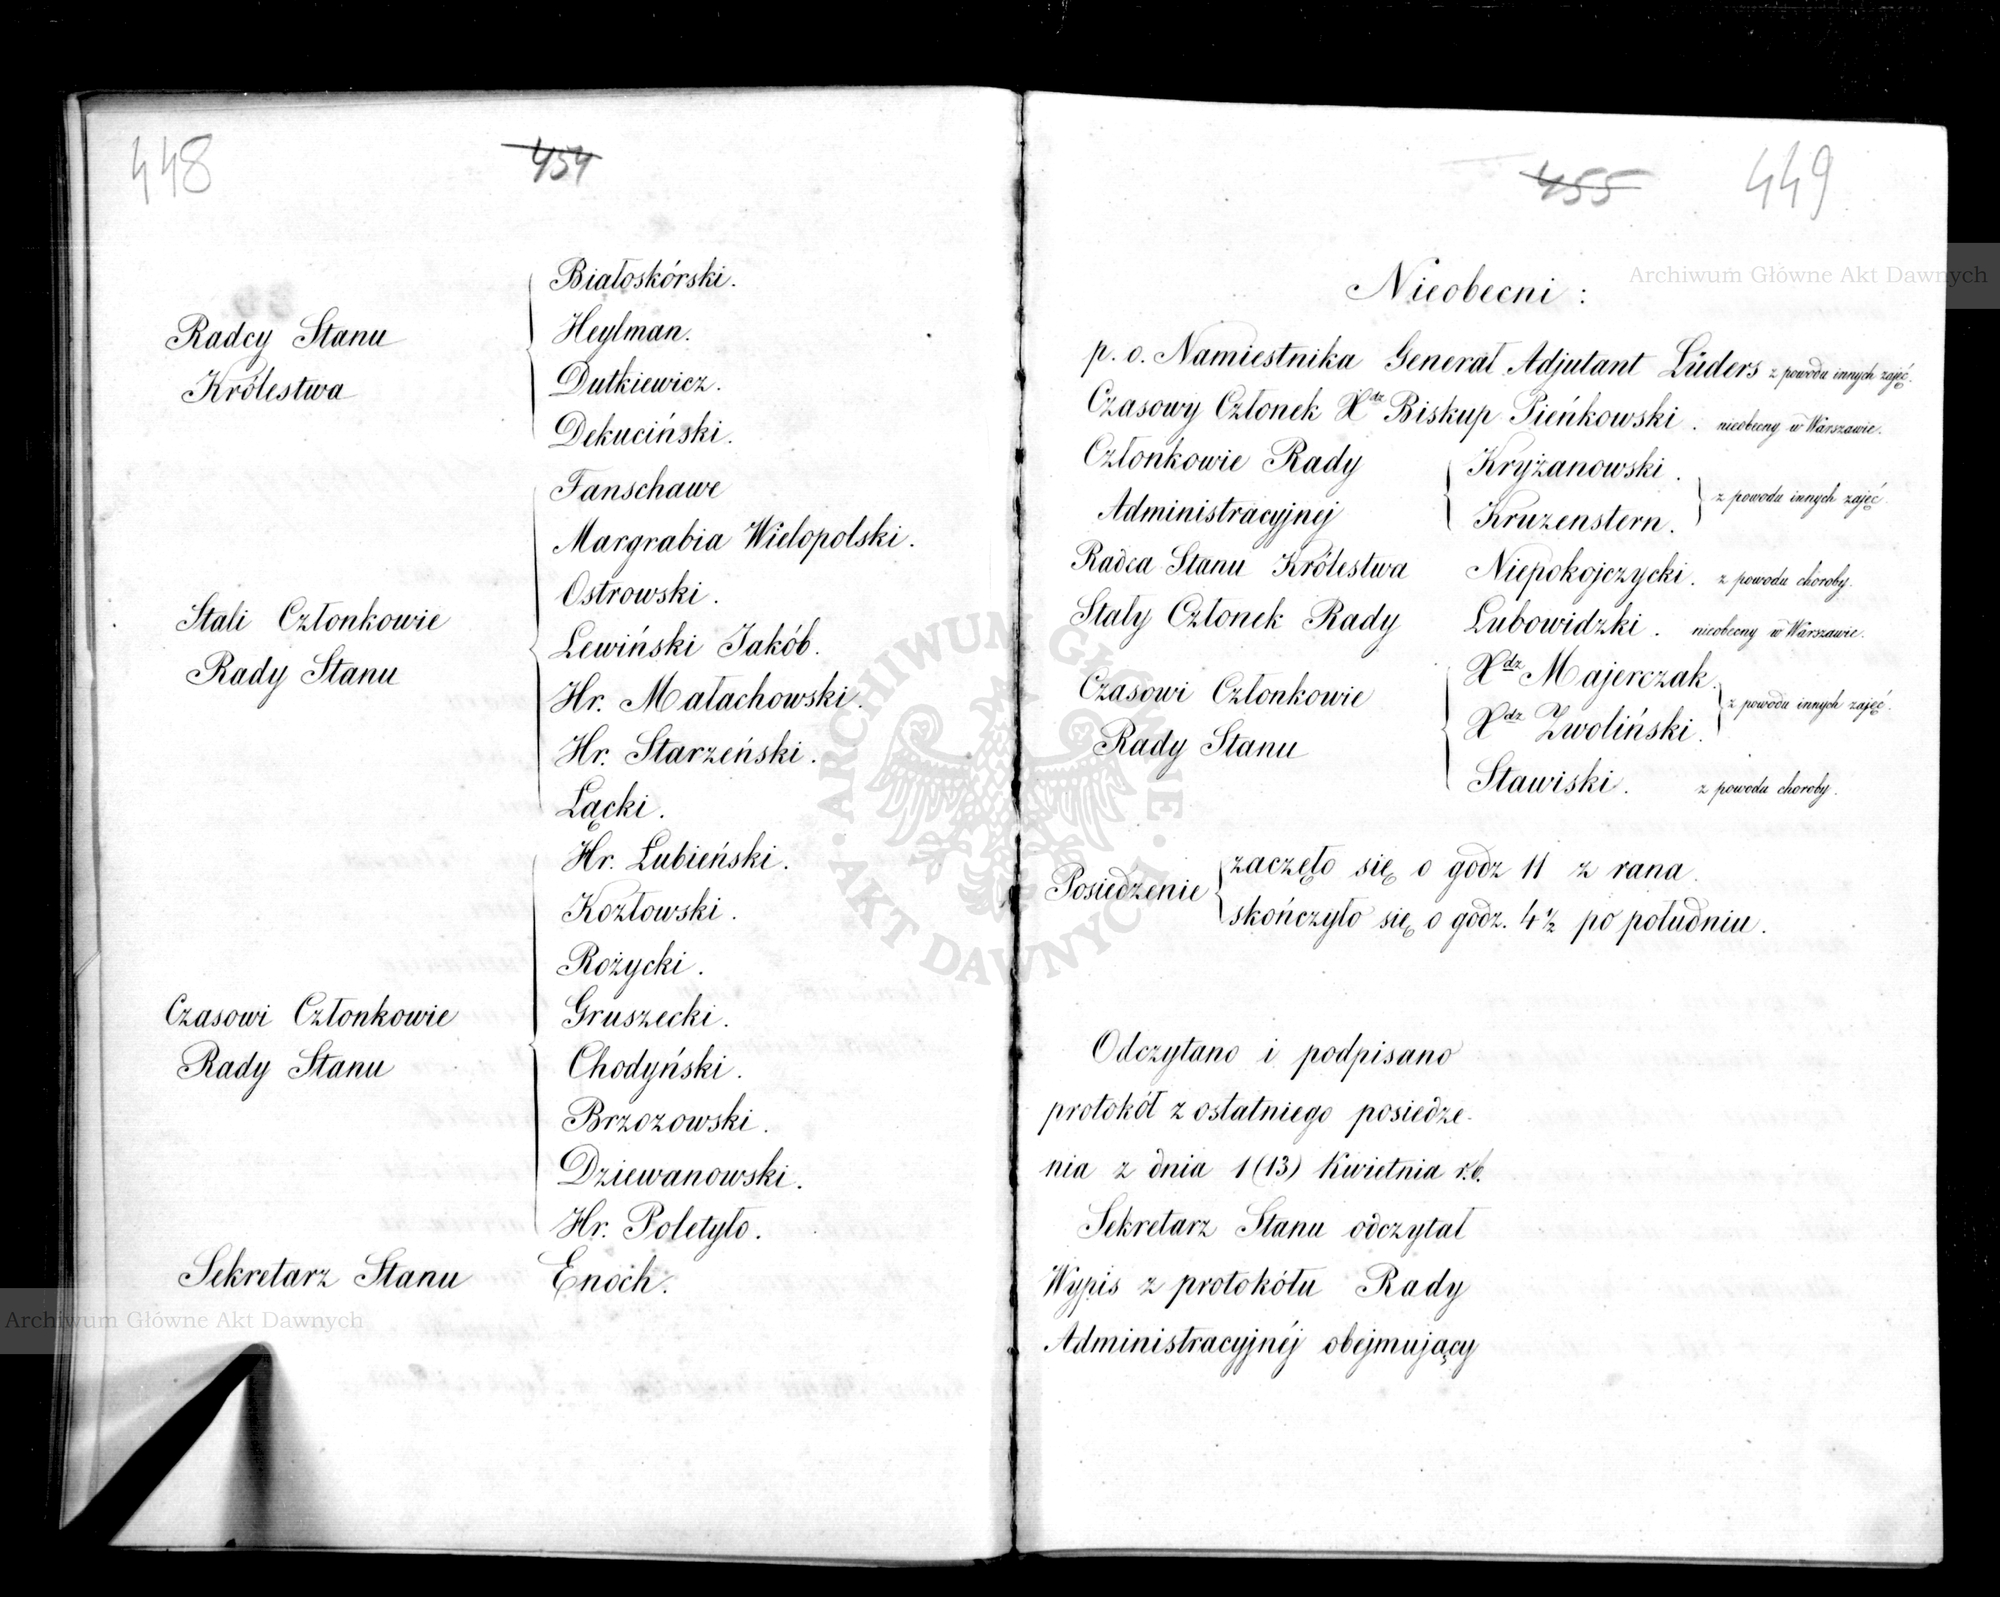 448
454
Białoskórski.
Radcy Stanu
Królestwa
Heylman.
Dutkiewicz.
Dekuciński.
Fanschawe
Margrabia Wielopolski.
Ostrowski.
Stali Członkowie
Rady Stanu
Lewiński Jakób.
Hr. Małachowski.
Hr. Starzeński.
Łącki.
Hr. Łubieński.
Kozłowski.
Rożycki.
Czasowi Członkowie
Rady Stanu
Gruszecki.
Chodyński.
Brzozowski.
Dziewanowski.
Hr. Poletyło.
Sekretarz Stanu Enoch.
455
449
Nieobecni:
p. o. Namiestnika Generał Adjutant Lüders z powodu innych zajęć.
Czasowy Członek Xdz Biskup Pieńkowski. nieobecny w Warszawie.
Członkowie Rady
Administracyjnej
Kryżanowski.
Kruzenstern.
z powodu innych zajęć
Radca Stanu Królestwa Niepokojczycki. z powodu choroby.
Stały Członek Rady Lubowidzki. nieobecny w Warszawie.
Czasowi Członkowie
Rady Stanu
Xdz Majerczak.
Xdz Zwoliński.
z powodu innych zajęć.
Stawiski. z powodu choroby.
Posiedzenie
zaczęło się o godz 11 z rana.
skończyło się o godz. 4 1/2 po południu.
Odczytano i podpisano
protokół z ostatniego posiedze-
nia z dnia 1 (13) Kwietnia r.b.
Sekretarz Stanu odczytał
Wypis z protokółu Rady
Administracyjnéj obejmujący
Archiwum Główne Akt Dawnych
Archiwum Główne Akt Dawnych
ARCHIWUM GŁÓWNE AKT DAWNYCH